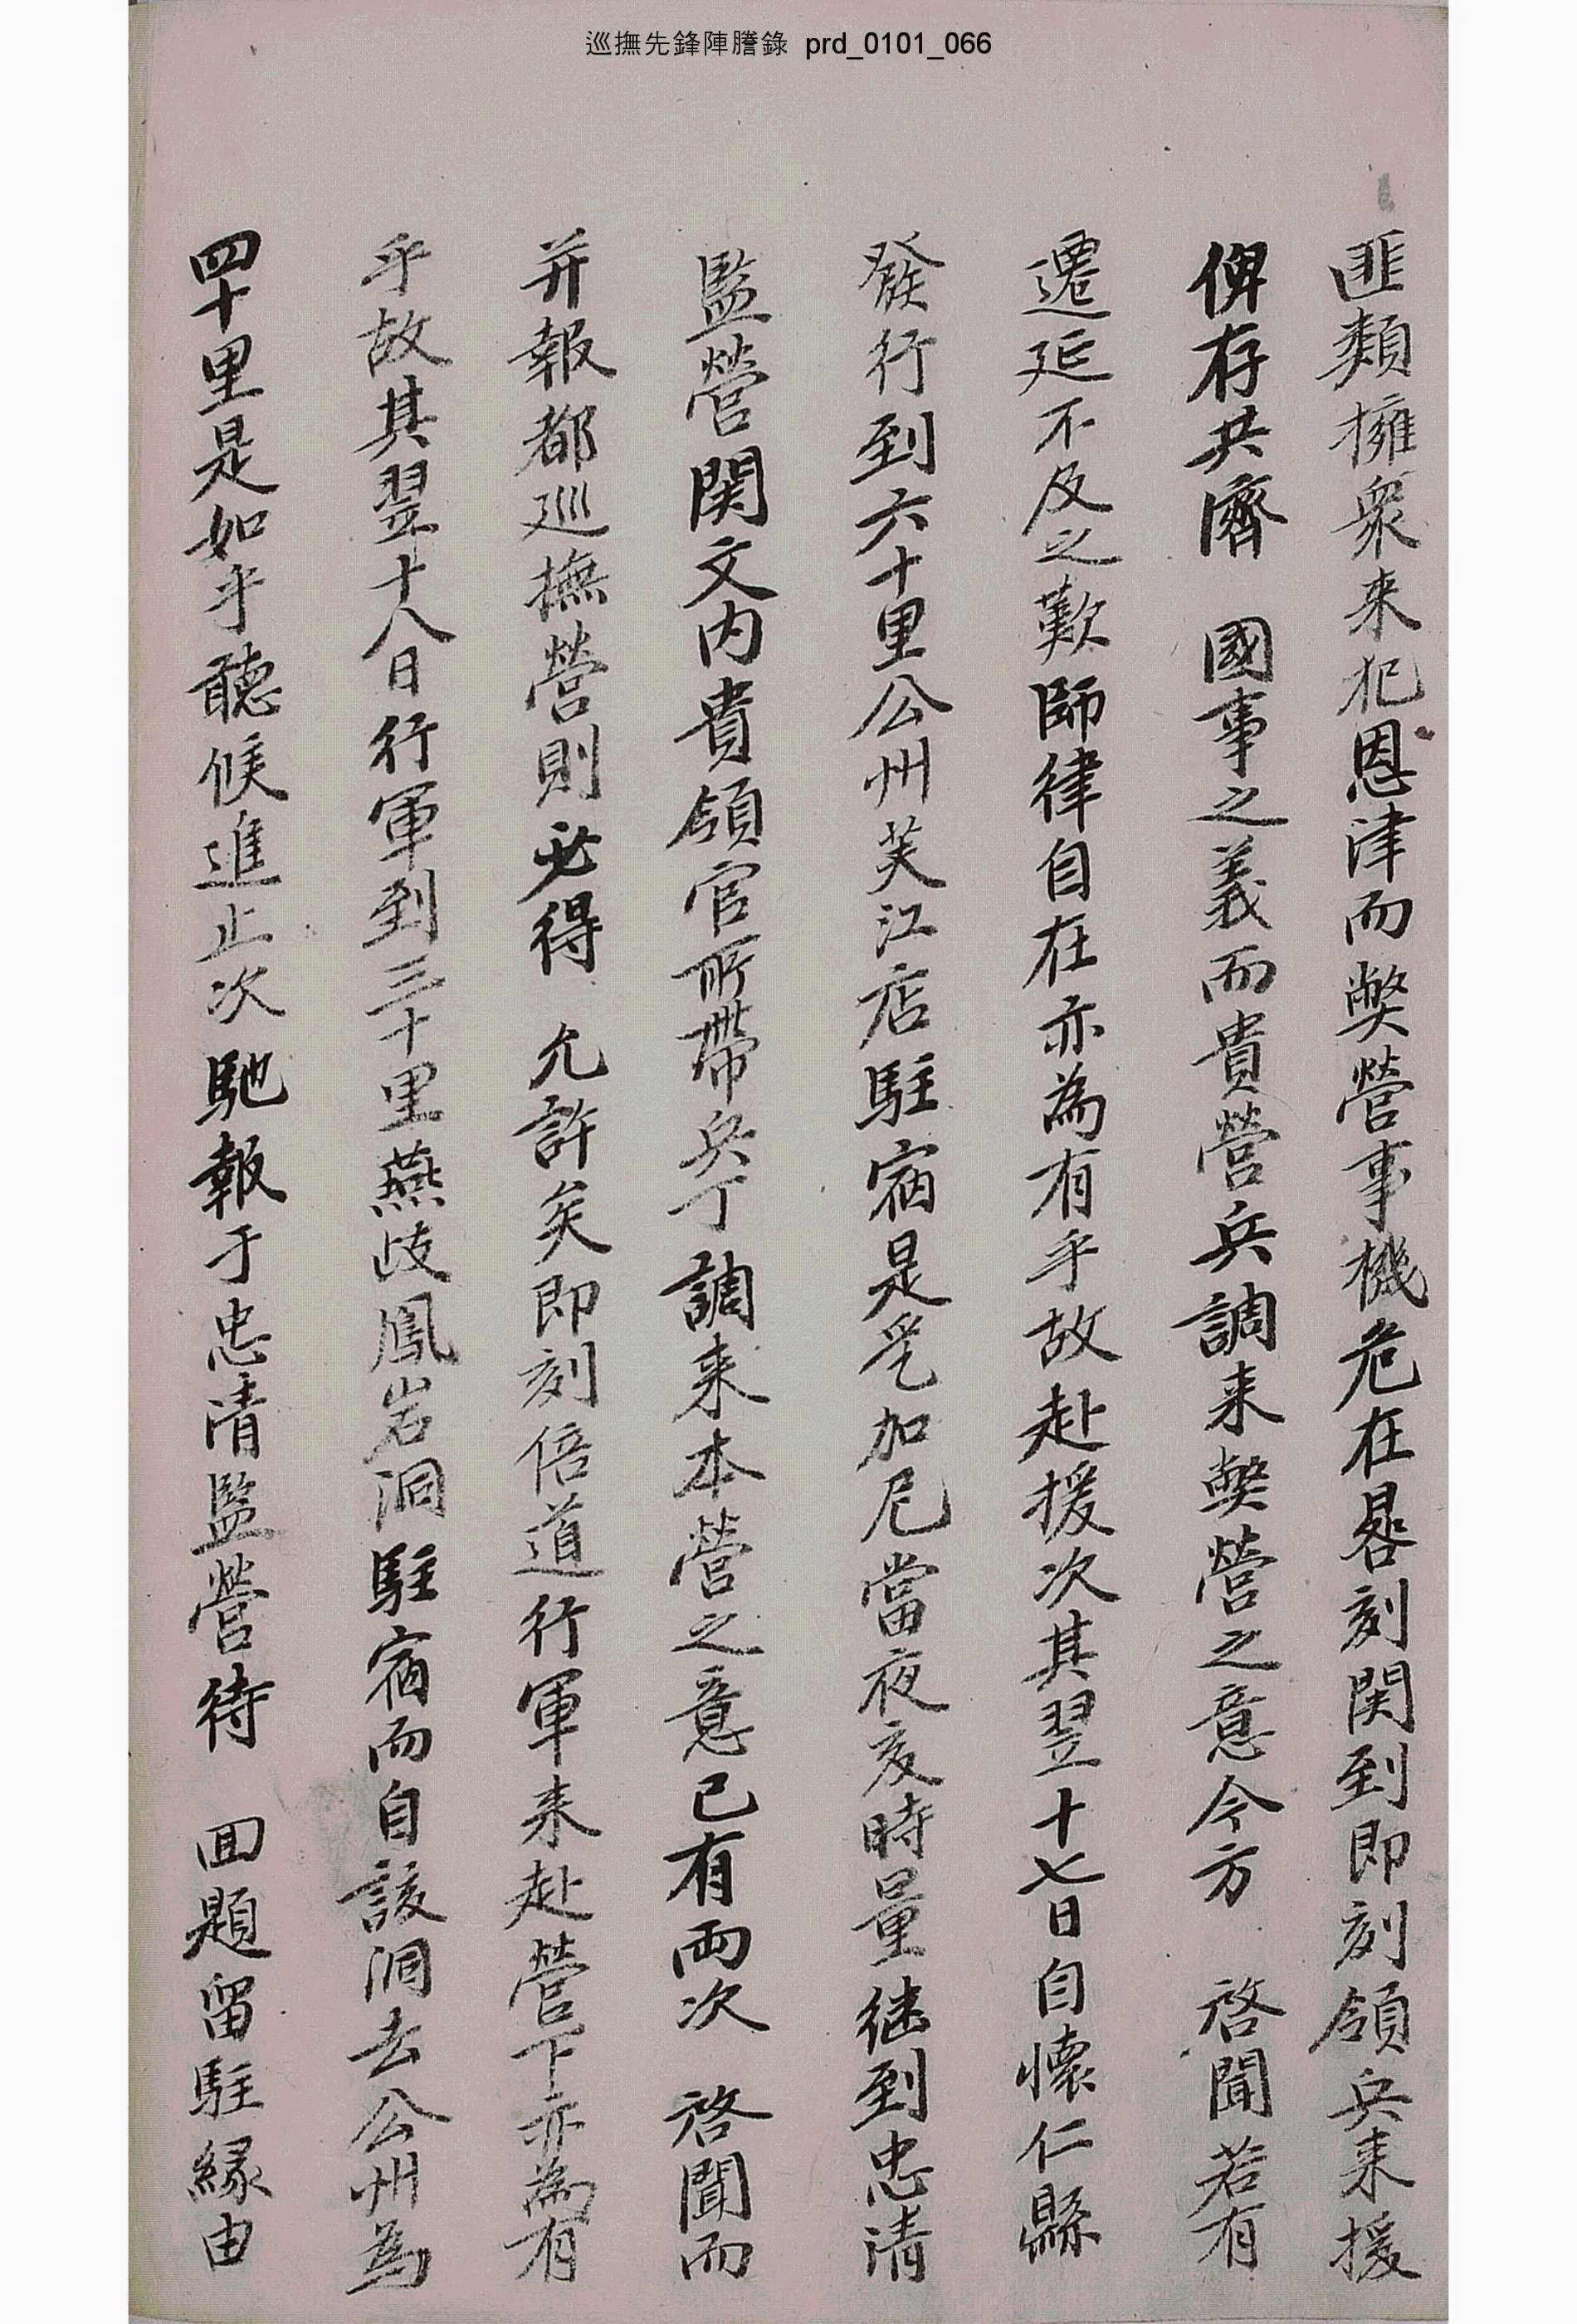 巡撫先鋒陣謄錄 prd_0101_066
匪類擁衆来犯恩津而弊營事機危在晷刻関到即刻領兵来援
俾存共濟 國事之義而貴營兵調来弊營之意今方 啓聞若有
遷延不及之歎師律自在亦為有乎故赴援次其翌十七日自懷仁縣
發行到六十里公州芙江店駐宿是乎加尼當夜亥時量継到忠清
監營関文内貴領官所帶兵丁調来本營之意已有兩次 啓聞而
并報都巡撫營則必得 允許矣即刻倍道行軍来赴營下亦為有
乎故其翌十八日行軍到三十里燕歧鳳岩洞駐宿而自該洞去公州為
四十里是如乎聽候進止次馳報于忠清監營待 回題留駐緣由